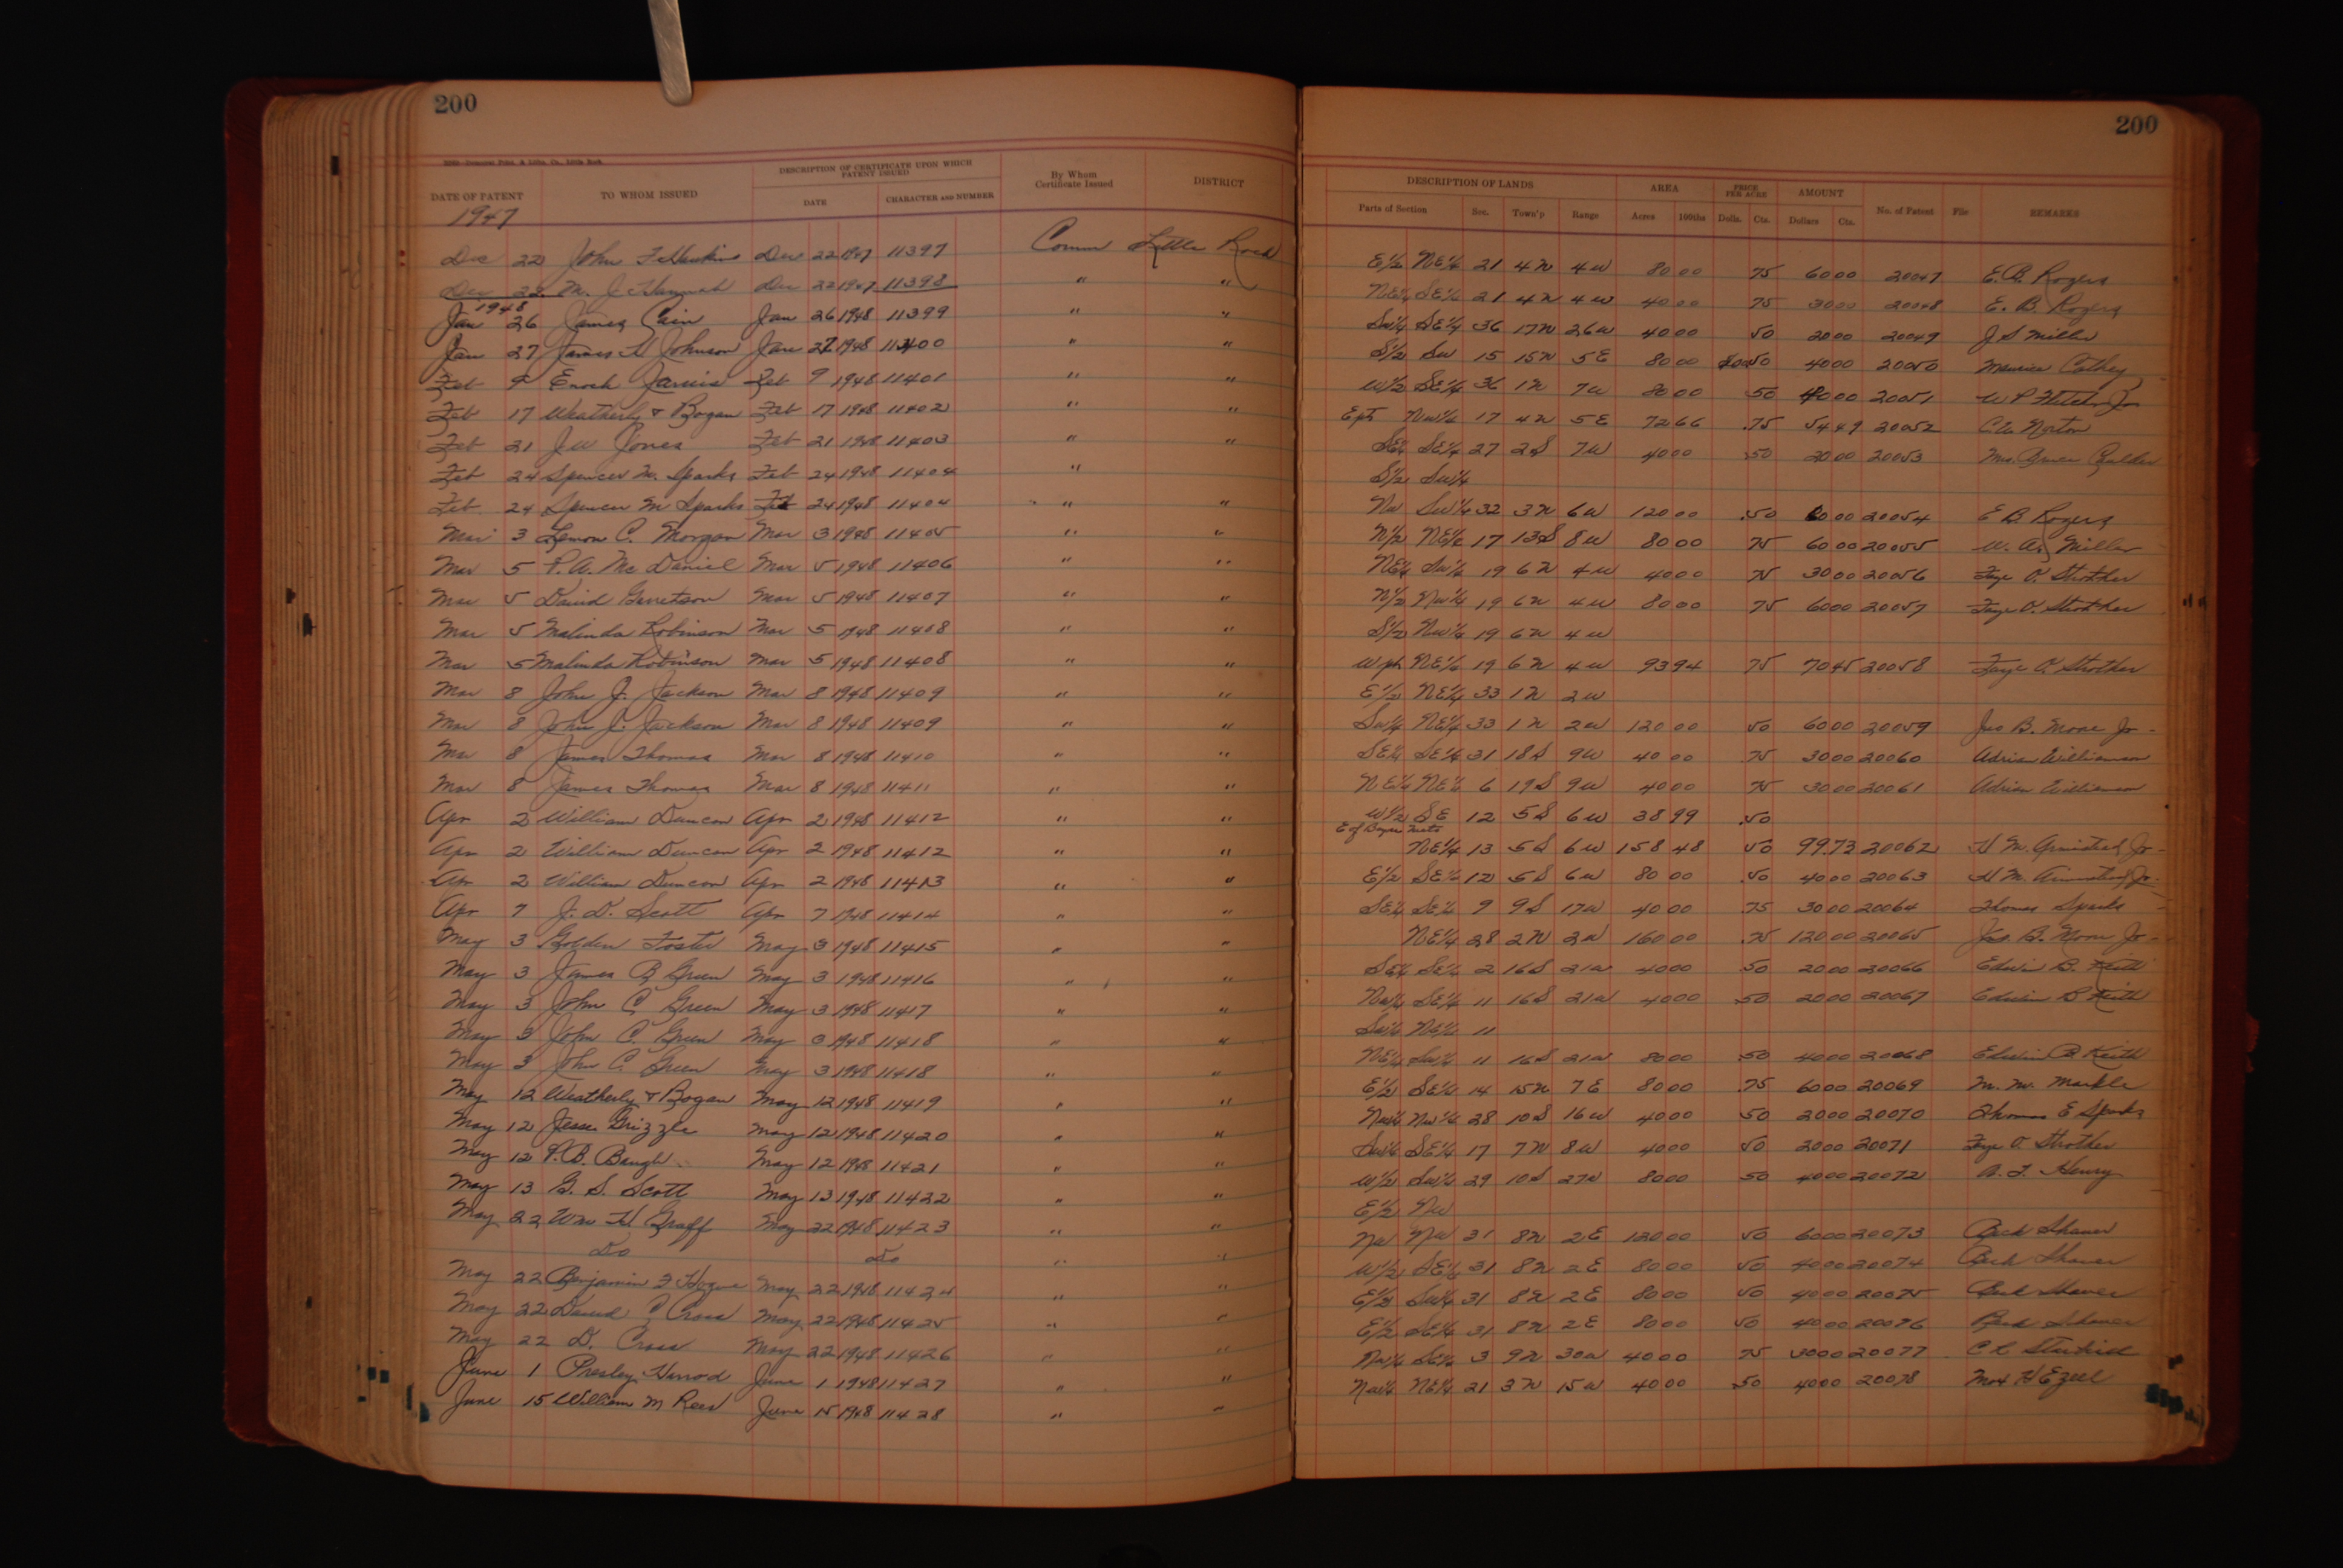 200
200
DATE OF PATENT TO WHOM ISSUED DESCRIPTION OF CERTIFICATE UPON WHICH PATENT ISSUED By Whom Certificate Issued DISTRICT DESCRIPTION OF LANDS AREA PRICE PER ACRE AMOUNT No. of Patent File REMARKS
DATE CHARACTER AND NUMBER Parts of Section Sec. Town'p Range Acres 100ths Dolls. Cts. Dollars Cts.
1947
Dec 22 John F Hawkins Dec 22 1947 11397 Comm Little Rock E½ NE¼ 21 4N 4W 80 00 75 60 00 20047 E. B. Rogers
Dec 22 M. J. Hannah Dec 22 1947 11398 " " NE¼ SE¼ 21 4N 4W 40 00 75 30 00 20048 E. B. Rogers
1948
Jan 26 James Cain Jan 26 1948 11399 " " SW¼ SE¼ 36 17N 26W 40 00 50 20 00 20049 J S Miller
Jan 27 James H Johnson Jan 27 1948 11400 " " S½ SW 15 15N 5E 80 00 50 40 00 20050 Maurice Cathey
Feb 9 Enoch Jarvis Feb 9 1948 11401 " " W½ SE¼ 36 1N 7W 80 00 50 40 00 20051 W P Fletcher Jr
Feb 17 Weatherly & Bogan Feb 17 1948 11402 " " E pt NW¼ 17 4N 5E 72 66 .75 54 49 20052 C. W. Norton
Feb 21 J W Jones Feb 21 1948 11403 " " SE¼ SE¼ 27 2S 7W 40 00 .50 20 00 20053 Mrs.
Feb 24 Spencer M. Sparks Feb 24 1948 11404 " S½ SW¼
Feb 24 Spencer M Sparks Feb 24 1948 11404 " " NW SW¼ 32 3N 6W 120 00 .50 60 00 20054 E B Rogers
Mar 3 Lemon C. Morgan Mar 3 1948 11405 " " N½ NE¼ 17 13S 8W 80 00 75 60 00 20055 W. A. Miller
Mar 5 P. A. Mc Daniel Mar 5 1948 11406 " " NE¼ SW¼ 19 6N 4W 40 00 75 30 00 20056 Faye O. Strother
Mar 5 David Garretson Mar 5 1948 11407 " " N½ NW¼ 19 6N 4W 80 00 75 60 00 20057 Faye O. Strother
Mar 5 Malinda Robinson Mar 5 1948 11408 " " S½ NW¼ 19 6N 4W
Mar 5 Malinda Robinson Mar 5 1948 11408 " " W pt NE¼ 19 6N 4W 93 94 75 70 45 20058 Faye O. Strother
Mar 8 John J. Jackson Mar 8 1948 11409 " " E½ NE¼ 33 1N 2W
Mar 8 John J. Jackson Mar 8 1948 11409 " " SW¼ NE¼ 33 1N 2W 120 00 50 60 00 20059 Jno B. Moore Jr
Mar 8 James Thomas Mar 8 1948 11410 " " SE¼ SE¼ 31 18S 9W 40 00 75 30 00 20060 Adrian Williamson
Mar 8 James Thomas Mar 8 1948 11411 " " NE¼ NE¼ 6 19S 9W 40 00 75 30 00 20061 Adrian Williamson
Apr 2 William Duncan Apr 2 1948 11412 " " W½ SE 12 5S 6W 38 99 .50
Apr 2 William Duncan Apr 2 1948 11412 " " E of Bayou Meto NE¼ 13 5S 6W 158 48 50 99.73 20062 H M. Armistead Jr
Apr 2 William Duncan Apr 2 1948 11413 " " E½ SE¼ 12 5S 6W 80 00 .50 40 00 20063 H M. Armistead Jr
Apr 7 J. D. Scott Apr 7 1948 11414 " " SE¼ SE¼ 9 9S 17W 40 00 .75 30 00 20064 Thomas Sparks
May 3 Golden Foster May 3 1948 11415 " " NE¼ 28 2N 2W 160 00 .75 120 00 20065 Jno. B. Moore Jr
May 3 James B Green May 3 1948 11416 " " SE¼ SE¼ 2 16S 21W 40 00 50 20 00 20066 Edwin B. Keith
May 3 John C Green May 3 1948 11417 " " NW¼ SE¼ 11 16S 21W 40 00 .50 20 00 20067 Edwin B Keith
May 3 John C. Green May 3 1948 11418 " " SW¼ NE¼ 11
May 3 John C. Green May 3 1948 11418 " " NE¼ SW¼ 11 16S 21W 80 00 .50 40 00 20068 Edwin B Keith
May 12 Weatherly & Bogan May 12 1948 11419 " " E½ SE¼ 14 15N 7E 80 00 .75 60 00 20069 M. W. Markle
May 12 Jesse Grizzle May 12 1948 11420 " " NW¼ NW¼ 28 10S 16W 40 00 50 20 00 20070 Thomas E Sparks
May 12 P. B. Baugh May 12 1948 11421 " " SW¼ SE¼ 17 7N 8W 40 00 50 20 00 20071 Faye O. Strother
May 13 G. S. Scott May 13 1948 11422 " " W½ SW¼ 29 10S 27W 80 00 50 40 00 20072 B. F. Henry
May 22 Wm H Graff May 22 1948 11423 " " E½ NW
Do Do " " NW NW 31 8N 2E 120 00 50 60 00 20073 Beck Shaver
May 22 Benjamin F Hogue May 22 1948 11424 " " W½ SE¼ 31 8N 2E 80 00 50 40 00 20074 Beck Shaver
May 22 David C Cross May 22 1948 11425 " " E½ SW¼ 31 8N 2E 80 00 50 40 00 20075 Beck Shaver
May 22 D. Cross May 22 1948 11426 " " E½ SE¼ 31 8N 2E 80 00 50 40 00 20076 Beck Shaver
June 1 Presley Harrod June 1 1948 11427 " " NW¼ SE¼ 3 9N 30W 40 00 75 30 00 20077 C R
June 15 William M Reed June 15 1948 11428 " " NW¼ NE¼ 21 3N 15W 40 00 .50 40 00 20078 H Ezell